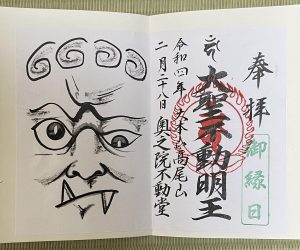 奉拝
御縁日
大聖不動明王
令和四年 大本山高尾山
二月二十八日 奥之院不動堂